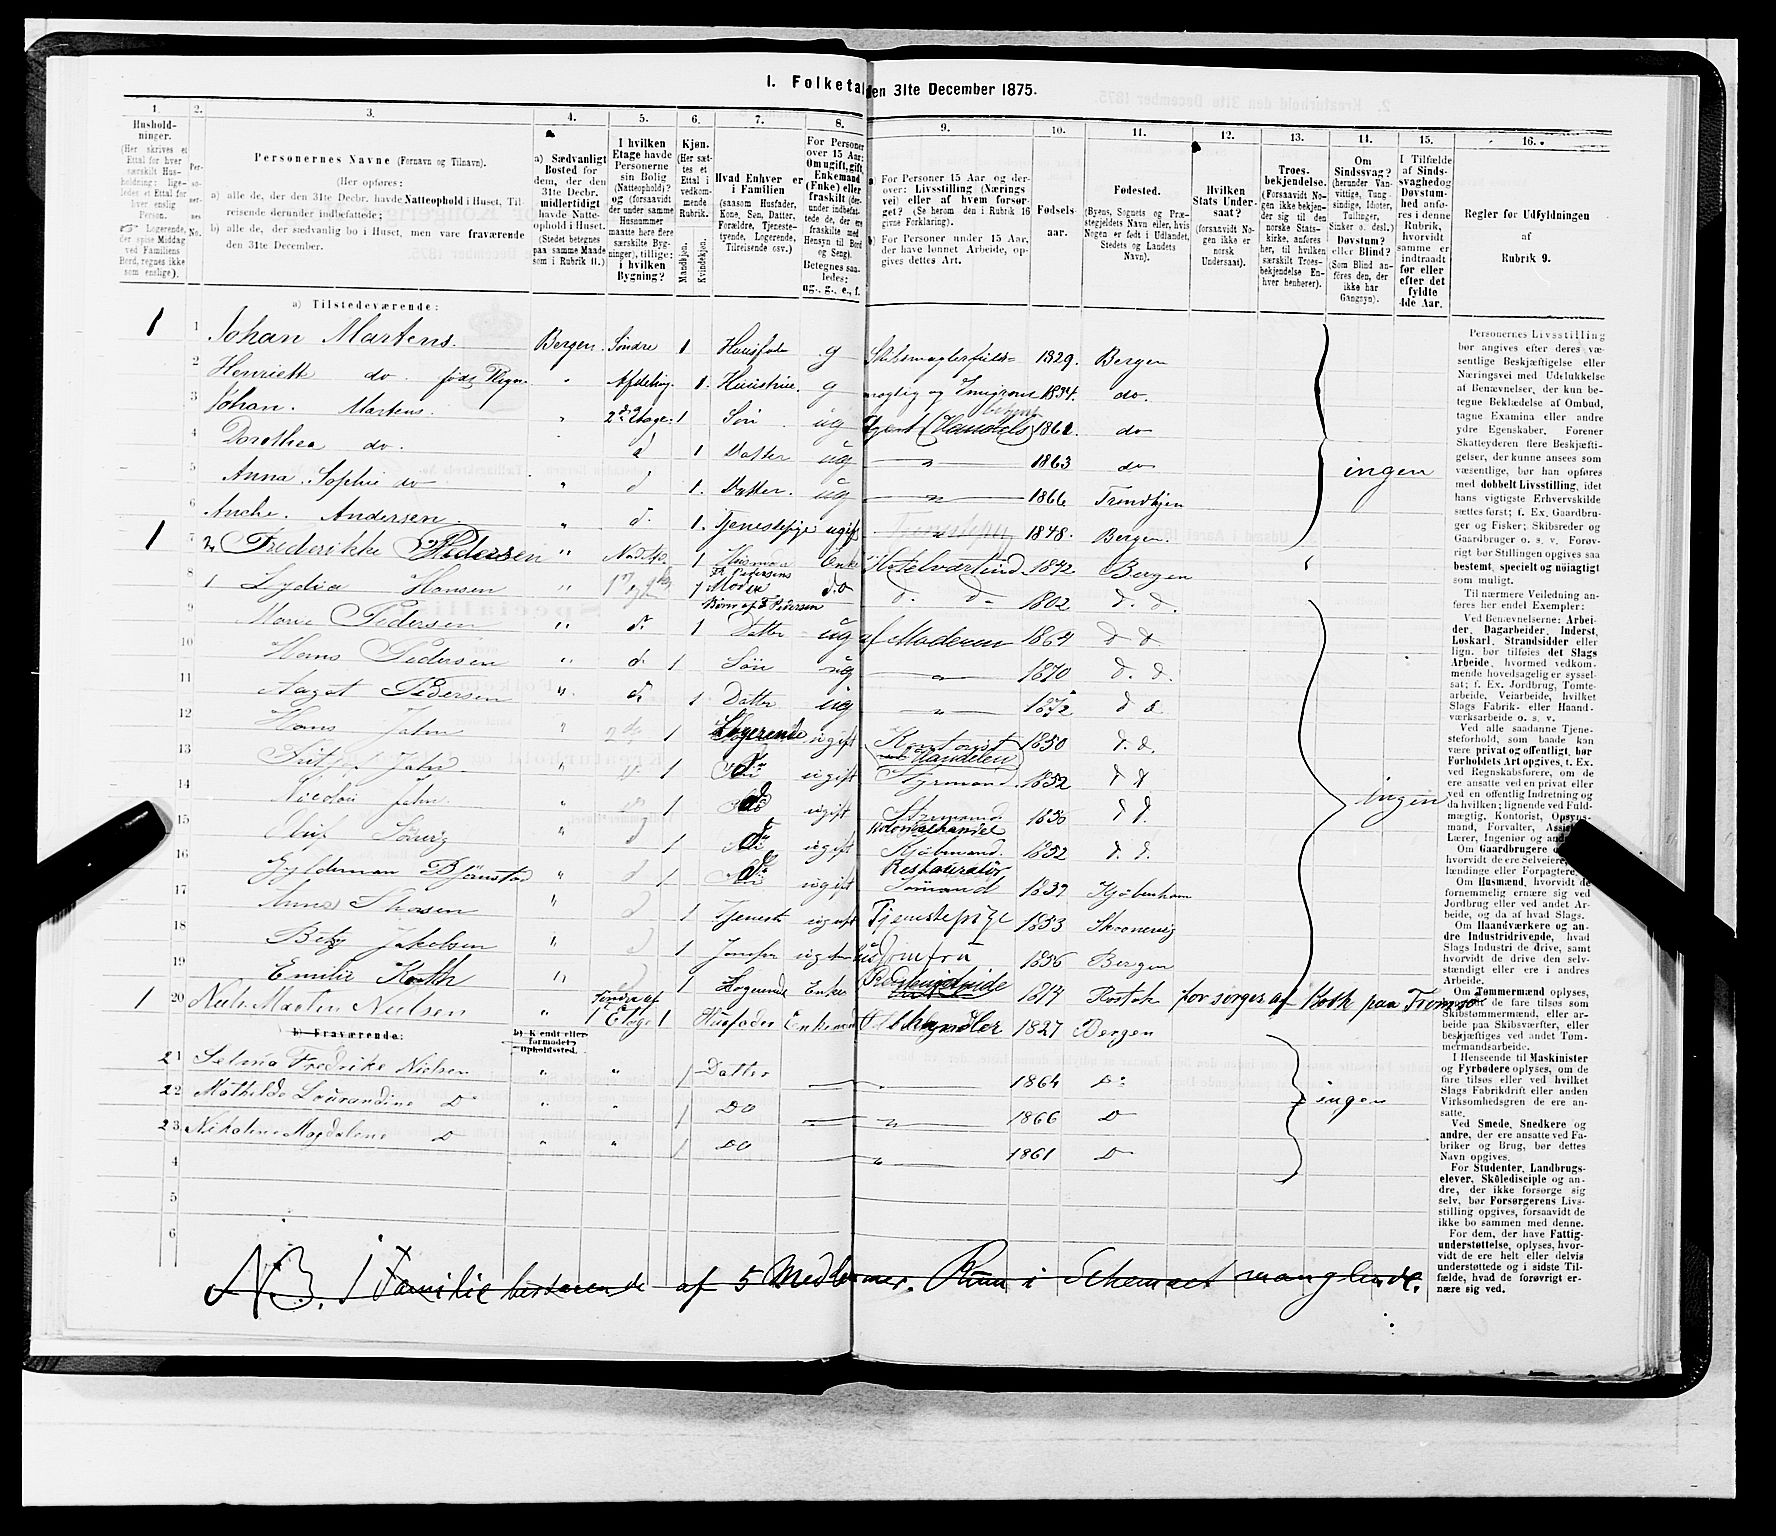 I. Folketal den 31te December 1875.
1. 2. 3. 4. 5. 6. 7. 8. 9. 10. 11. 12. 13. 14. 15. 16.
Hushold-
ninger.
(Her skrives et
Ettal for hver
særskilt Hus-
holdning; lige-
ledes et Ettal for
hver enslig
Person.
☞ Logerende,
der spise Middag
ved Familiens
Bord, regnes ikke
som enslige).
Per-
so-
ner-
nes
No.
Personernes Navne (Fornavn og Tilnavn).
(Her opføres:
a) alle de, der den 31te Decbr. havde Natteophold i Huset, Til-
reisende derunder indbefattede;
b) alle de, der sædvanlig bo i Huset, men vare fraværende
den 31te December.
a) Sædvanligt
Bosted for
dem, der den
31te Decbr.
midlertidigt
havde Natte-
ophold i Huset.
(Stedet betegnes
paa samme Maade
som i Rubrik 11.)
I hvilken
Etage havde
Personerne
sin Bolig
(Natteophold)?
og (forsaavidt
der under samme
Husnummer
maatte høre flere
særskilte Byg-
ninger), tillige:
i hvilken
Bygning?
Kjøn.
(Her sæt-
tes et
Ettal i
vedkom-
mende
Rubrik.
Mandkjøn.
Kvindekjøn.
Hvad Enhver er
i Familien
(saasom Husfader,
Kone, Søn, Datter,
Forældre, Tjeneste-
tyende, Logerende,
Tilreisende osv.)
For Personer
over 15 Aar:
Om ugift, gift,
Enkemand
(Enke) eller
fraskilt
(der-
under indbefat-
tede de, der ere
fraskilte med
Hensyn til Bord
og Seng).
Betegnes saa-
ledes:
ug., g., e., f.
a) For Personer 15 Aar og der-
over: Livsstilling (Nærings
vei) eller af hvem forsør-
get? (Se herom den i Rubrik 16
givne Forklaring).
b) For Personer under 15 Aar,
der have lønnet Arbeide, op-
gives dettes Art.
Fødsels-
aar.
Fødested.
(Byens, Sognets og Præ-
stegjeldets Navn eller, hvis
Nogen er født i Udlandet,
Stedets og Landets
Navn).
Hvilken
Stats Under-
saat?
(forsaavidt No-
gen ikke er
norsk
Undersaat).
Troes-
bekjendelse.
(Forsaavidt No-
gen ikke bekjen-
der sig til den
norske Stats-
kirke, anføres
her, til hvilken
særskilt Troes-
bekjendelse En-
hver henhører).
Om
Sindssvag?
(herunder Van-
vittige, Tung
sindige, Idioter,
Taltinger,
Sinker o. desl.)
Døvstum?
eller Blind?
(Som Blind an-
føres den, der
ikke har
Gangsyn).
I Tilfælde
af Sinds-
svaghed og
Døvstum-
hed anfø-
res i denne
Rubrik,
hvorvidt
samme er
indtraadt
før eller
efter det
fyldte
4de Aar.
Regler for Udfyldningen
af
Rubrik 9.
a) Tilstedeværende:
1 1 Johan Martens. Bergen. Søndre 1 Huusfader g Skibsmæglerfuld= 1829. Bergen
2 Henriett do. født " Afdeling. 1. Huustrue. g mægtig og Emigrant 1834. do.
3 Johan. Martens. " 2den Etage. 1 Søn ug Agent (Handels) betjent 1861. do
4 Dorothea do. d 1 Datter ug " 1863 do
5 Anna Sophie do " d 1. Datter. ug " 1866 Trondhjem ingen
6 Anche. Andersen. " d. 1. Tjenestepige ugift " 1848. Bergen.
1 7 Frederikke Pedersen " 1 Enke Hotelværtinde 1842 Bergen
8 1 Lydia Hansen " 1 Fr Pedersens Moder do d. d- 1802 d. d.
Børn af F Pedersen
9 Marie Pedersen " d. 1 Datter ug af Moderen 1864 d d.
10 Hans Pedersen " d. 1 Søn ug " 1870 d. d.
11 Aagot Pedersen " d. 1 Datter ug " 1872 d d
12 Hans Jahn " 1 Logerende ugift Kontorist 1850 d. d. Handelen
13 Jahn " 1 do ugift Styrmand 1852 d d
14 Nicolai Jahn. " 1 do ugift Styrmand 1850 d d. ingen
15 Oluf " d 1 do ugift Kolonialhandel Kjøbmand. 1852 d. d.
16 " d 1 do ugift Restauratør 1839 Kjøbenhavn
17 Anna " d 1 Tjenest ugift Tjenestepige 1853
18 Jakobsen " d 1 Jomfru ugift Jomfru 1856 Bergen
19 Emilie Koth " 1 Logerende Enke 1814 Rostok forsørges af Koth paa Tromsø
1 20 Niels Martin Nielsen " Søndre af 1 Etage 1 Husfader Enkemand 1827 Bergen
b) Fraværende:
b) Kjendt eller
formodet
Opholdssted.
21 Selma Fredrike Nielsen " " 1 Datter " 1864 Do
22 Mathilde Lourandine D " " 1 DO " 1866 D ingen
23 Nikoline Magdalene D " " 1 DO " 1861 D
4
5
6
NB. 1 Familie bestaaende af 5 Medlemmer. Rum i Schemaet manglende.
Personernes Livsstilling
bør angives efter deres væ-
sentlige Beskjæftigelse eller
Næringsvei med Udelukkelse
af Benævnelser, der kun be-
tegne Beklædelse af Ombud,
tagne Examina eller andre
ydre Egenskaber. Forener
Skatteyderen flere Beskjæfti-
gelser, der kunne ansees som
væsentlige, bør han opføres
med dobbelt Livsstilling, idet
hans vigtigste Erhvervskilde
sættes først; f. Ex. Gaardbru-
ger og Fisker; Skibsreder og
Gaardbruger o. s. v. Forøv-
rigt bør Stillingen opgives saa
bestemt, specielt og nøiagtigt
som muligt.
Til nærmere Veiledning an-
føres her endel Exempler:
Ved Benævnelserne: Arbei-
der, Dagarbeider, Inderst,
Løskarl, Strandsidder eller
lign. bør tilføies det Slags
Arbeide, hvormed vedkom-
mende hovedsagelig er syssel-
sat; f. Ex. Jordbrug, Tomte-
arbeide, Veiarbeide, hvilket
Slags Fabrik- eller Haand-
værksarbeide o. s. v.
Ved alle saadanne Tjene-
steforhold, som baade kan
være privat og offentligt, bør
Forholdets Art opgives, t. Ex.
ved Regnskabsførere, om de
ere ansatte ved en privat eller
ved en offentlig Indretning og
da hvilken; lignende ved Fuld-
mægtig, Kontorist, Opsyns-
mand, Forvalter,
Lærer, Ingeniør og
Om Gaardbrugere
hvorvidt de ere Selveiere,
lændinge eller Forpagtere,
Om Husmænd, hvorvidt de
fornemmelig ernære sig ved
Jordbrug eller ved andet Ar-
beide, og da af hvad Slags.
Om Haandværkere og an-
dre Industridrivende, hvad
Slags Industri de drive, samt
hvorvidt de drive den selv-
stændigt eller ere i andres
Arbeide.
Om Tømmermænd oplyses,
hvorvidt de fare tilsøs som
Skibstømmermænd, eller ar-
beide paa Skibsværfter, eller
beskjæftiges ved andet Tøm-
mermandsarbeide.
I Henseende til Maskinister
og Fyrbødere oplyses, om de
fare tilsøs eller ved hvilket
Slags Fabrikdrift eller anden
Virksomhedsgren de ere an-
satte.
Ved Smede, Snedkere og
andre, der ere ansatte ved Fa-
briker og Brug, bør dettes
Navn opgives.
For Studenter, Landbrugs-
elever, Skoledisciple og an-
dre, der ikke forsørge sig
selv, bør Forsørgerens Livs-
stilling opgives, forsaavidt de
ikke bo sammen med denne.
For dem, der have Fattig-
understøttelse, oplyses, hvor-
vidt de ere helt eller delvis
understøttede og i sidste Til-
fælde, hvad de forøvrigt er-
nære sig ved.